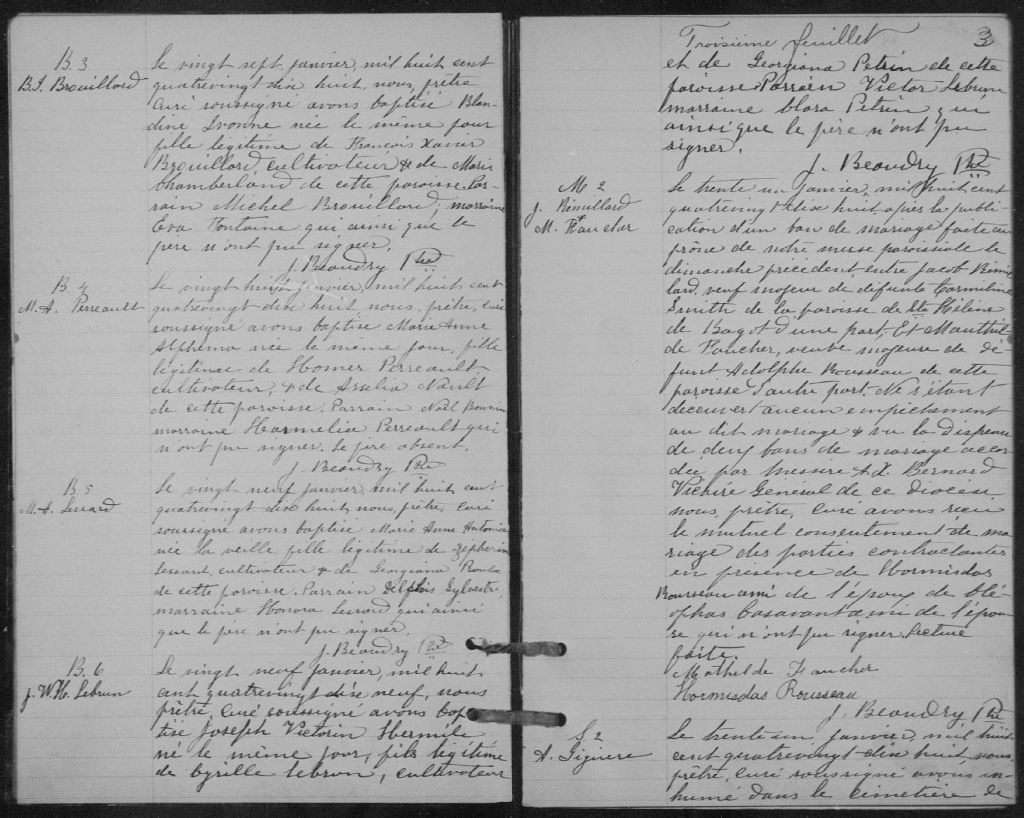 B. 3
B. I. Brouillard
Le vingt sept janvier, mil huit cent
quatrevingt dix huit, nous, prêtre
Curé soussigné avons baptisé Blan-
dine Ivonne née le même jour
fille légitime de François Xavier
Brouillard, cultivateur & de Marie
Chamberland de cette paroisse. Par-
rain Michel Brouillard; marraine
Eva Fontaine qui ainsi que le
père n'ont pu signer.
J. Beaudry Ptre
B. 4
M. A. Perreault
Le vingt huit janvier, mil huit cent
quatrevingt dix huit, nous, prêtre, curé
soussigné avons baptisé Marie Anne
Alphéma née le même jour, fille
légitime de Homer Perreault,
cultivateur, & de Azelia Nault
de cette paroisse. Parrain Noël
marraine Hermelia Perreault qui
n'ont pu signer. Le père absent.
J. Beaudry Ptre
B. 5
M. A. Lessard
Le vingt neuf janvier, mil huit cent
quatrevingt dix huit, nous, prêtre, curé
soussigné avons baptisé Marie Anne Antonia
née la veille fille légitime de Zéphirin
Lessard, cultivateur & de Georgiana
de cette paroisse. Parrain Delphis Sylvestre,
marraine Honora Lessard qui ainsi
que le père n'ont pu signer.
J. Beaudry Ptre
B. 6
J. V. H. Lebrun
Le vingt neuf janvier, mil huit
cent quatrevingt dix neuf, nous
prêtre, Curé soussigné avons bap
tisé Joseph Victorin Hermile
né le même jour, fils légitime
de Cyrille Lebrun, cultivateur
Troisième feuillet
3
et de Georgiana Petrin de cette
paroisse Parrain Victor Lebrun
marraine Clara Petrin qui
ainsi que le père n'ont pu
signer.
J. Beaudry Ptre
M 2
J. Rémillard
&
M. Faucher
Le trente un janvier, mil huit cent
quatrevingt dix huit, après la publi-
cation d'un ban de mariage faite au
prône de notre messe paroissiale le
dimanche précédent entre Jacob Rémil
lard, veuf majeur de défunte Carméline
Smith de la paroisse de Ste Hélène
de Bagot d'une part; Et Mathil-
de Faucher, veuve majeure de dé-
funt Adolphe Rousseau de cette
paroisse d'autre part. Ne s'étant
découvert aucun empêchement
au dit mariage & vu la Dispense
de deux bans de mariage accor
dée par Messire A. X. Bernard
Vicaire Général de ce diocèse
nous, prêtre, Curé avons reçu
le mutuel consentement de ma
riage des parties contractantes
en présence de Hormisdas
Rousseau ami de l'époux de Clé-
ophas Casavant ami de l'épou
se qui n'ont pu signer. Lecture
faite.
Mathilde Faucher
Hormisdas Rousseau
J. Beaudry, Ptre
S 2
A. Giguere
Le trente un janvier, mil huit
cent quatrevingt dix huit, nous
prêtre, Curé soussigné avons in-
humé dans le cimetière de